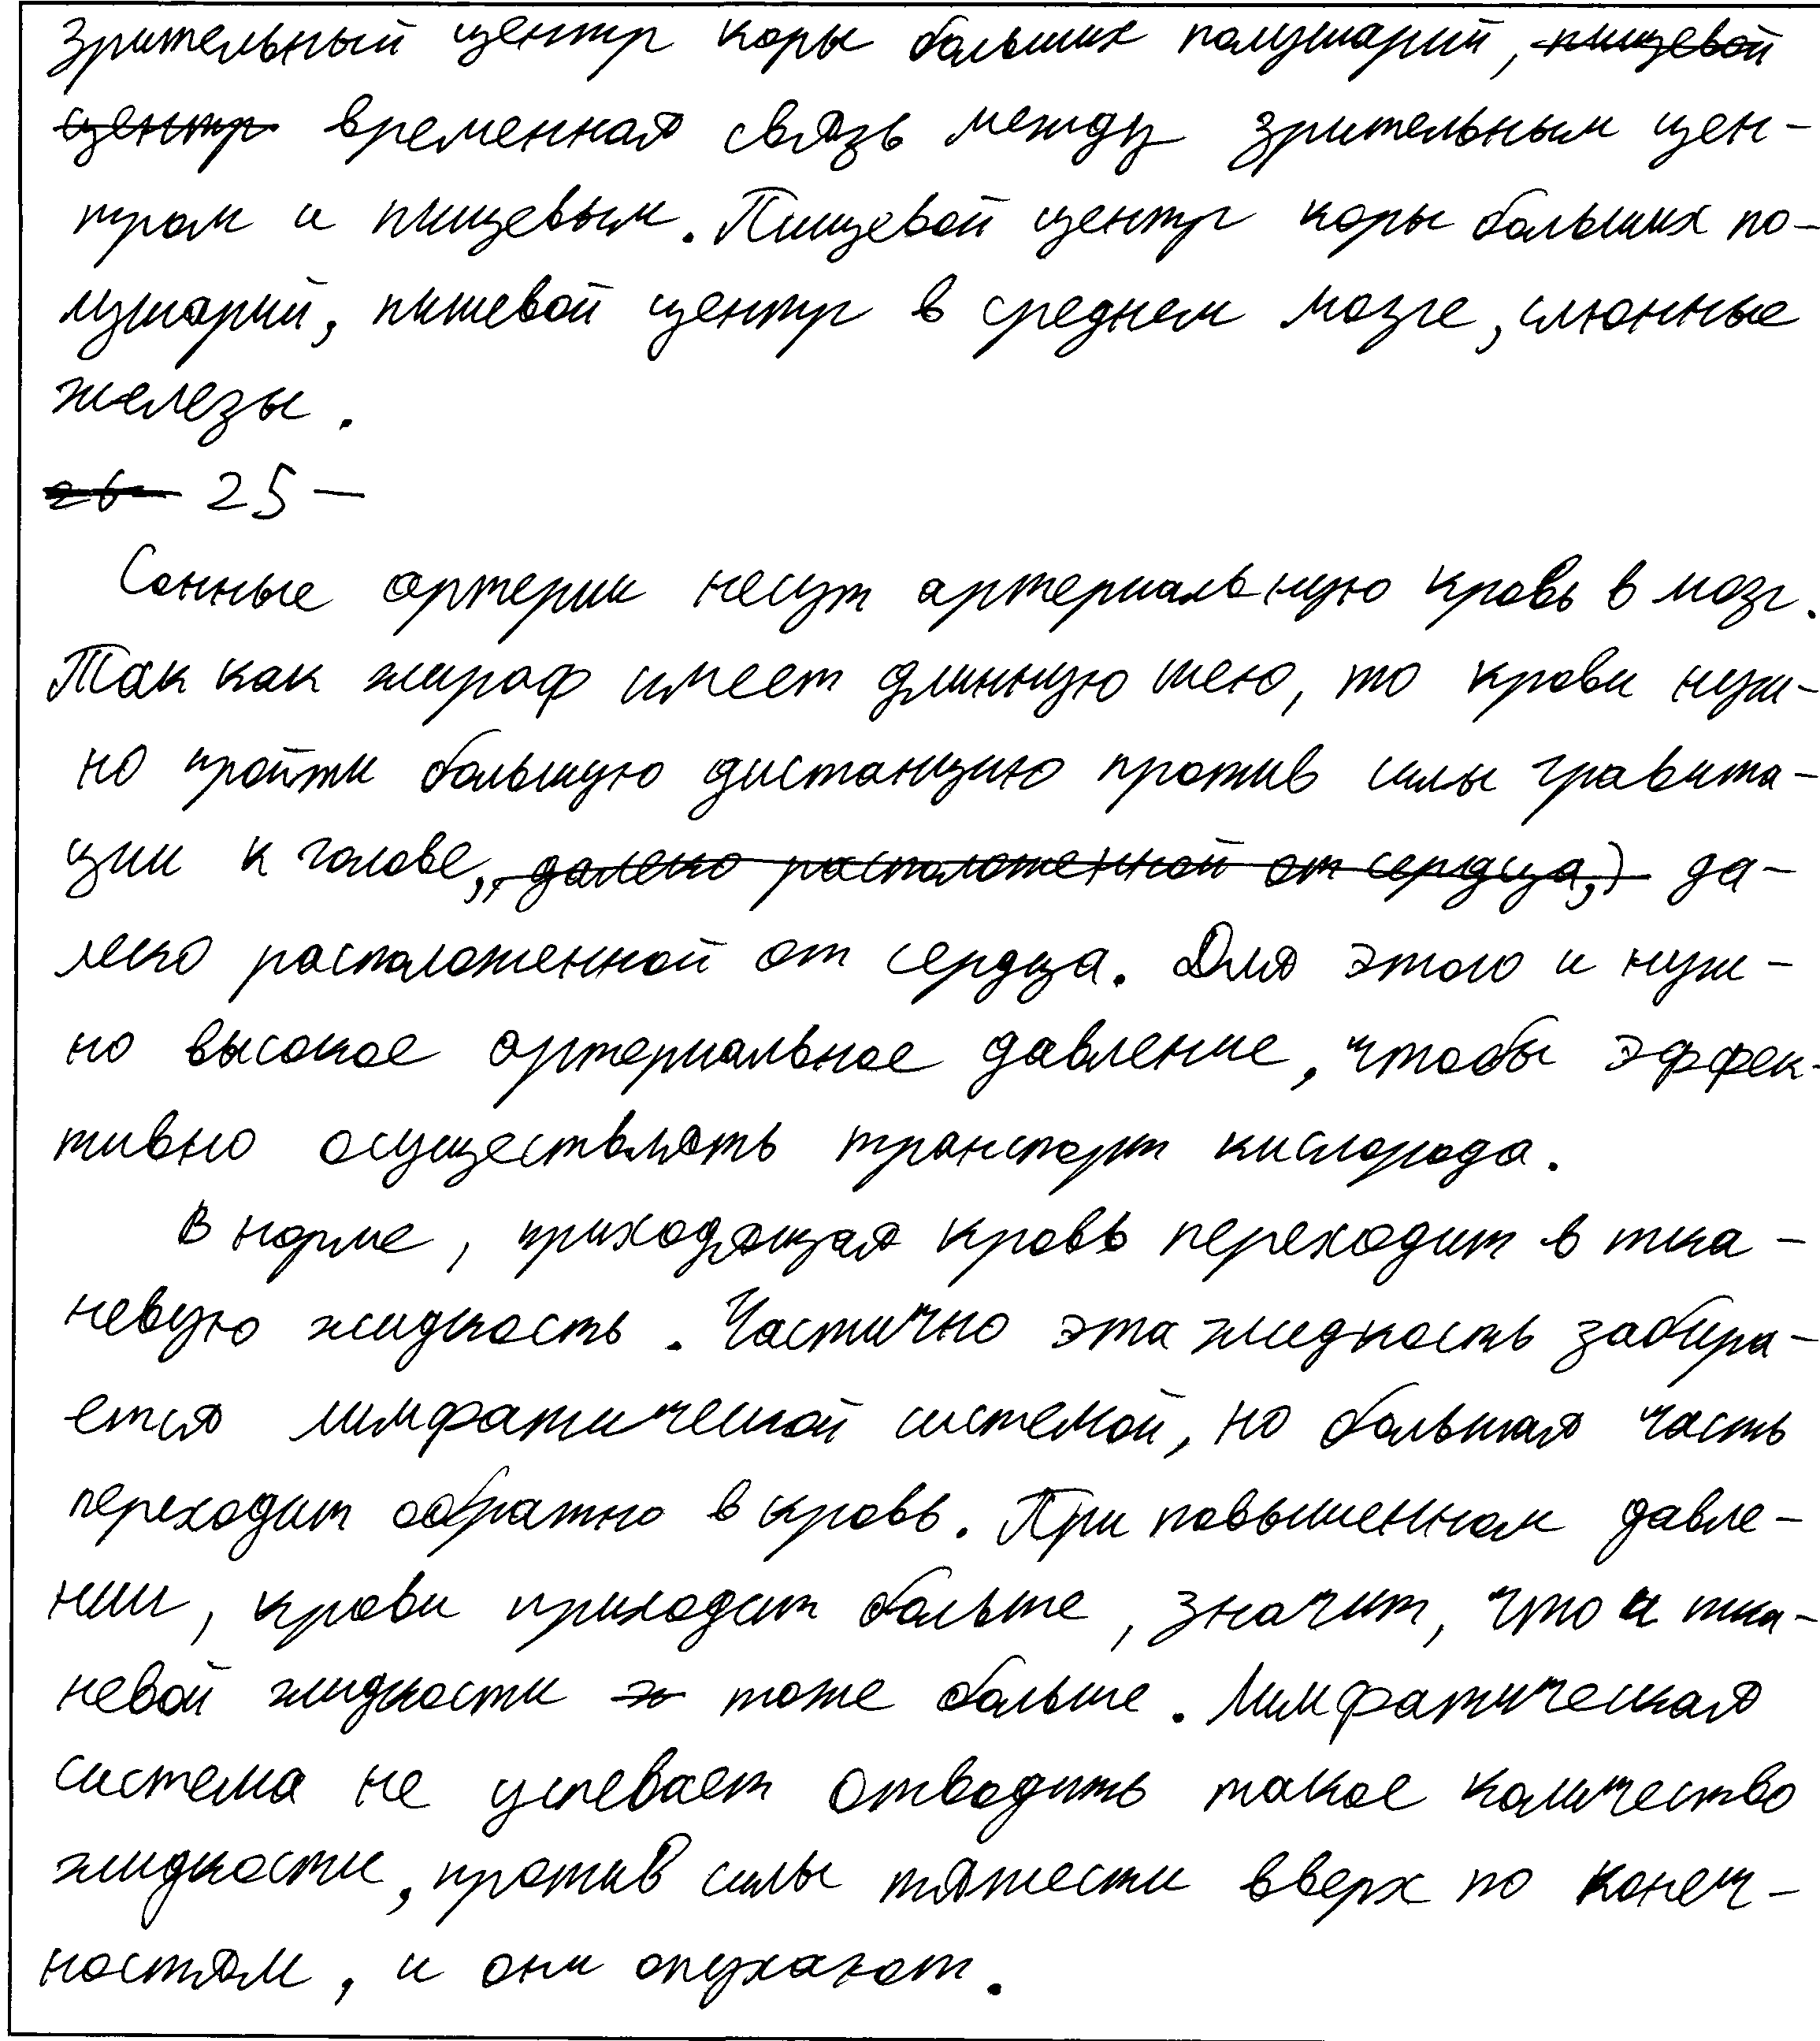 зрительный центр коры больших полушарий, пищевой
центр временная связь между зрительным цен-
тром и пищевым. Пищевой центр коры больших по-
лушарий, пищевой центр в среднем мозге, слюнные
железы.
26- 25 -
Сонные артерии несут артериальную кровь в мозг.
Так как жираф имеет длинную шею, то крови нуж-
но пройти большую дистанцию против силы гравита-
ции к голове, далеко расположенной от сердца, да-
леко расположенной от сердца. Для этого и нуж-
но высокое артериальное давление, чтобы эффек-
тивно осуществлять транспорт кислорода.
В норме, приходящая кровь переходит в тка-
невую жидкость. Частично эта жидкость забира-
ется лимфатической системой, но большая часть
переходит обратно в кровь. При повышенном давле-
нии, крови приходит больше, значит, что и тка-
невой жидкости тоже больше. Лимфатическая
система не успевает отводить такое количество
жидкости, против силы тяжести вверх по конеч-
ностям, и они опухают.